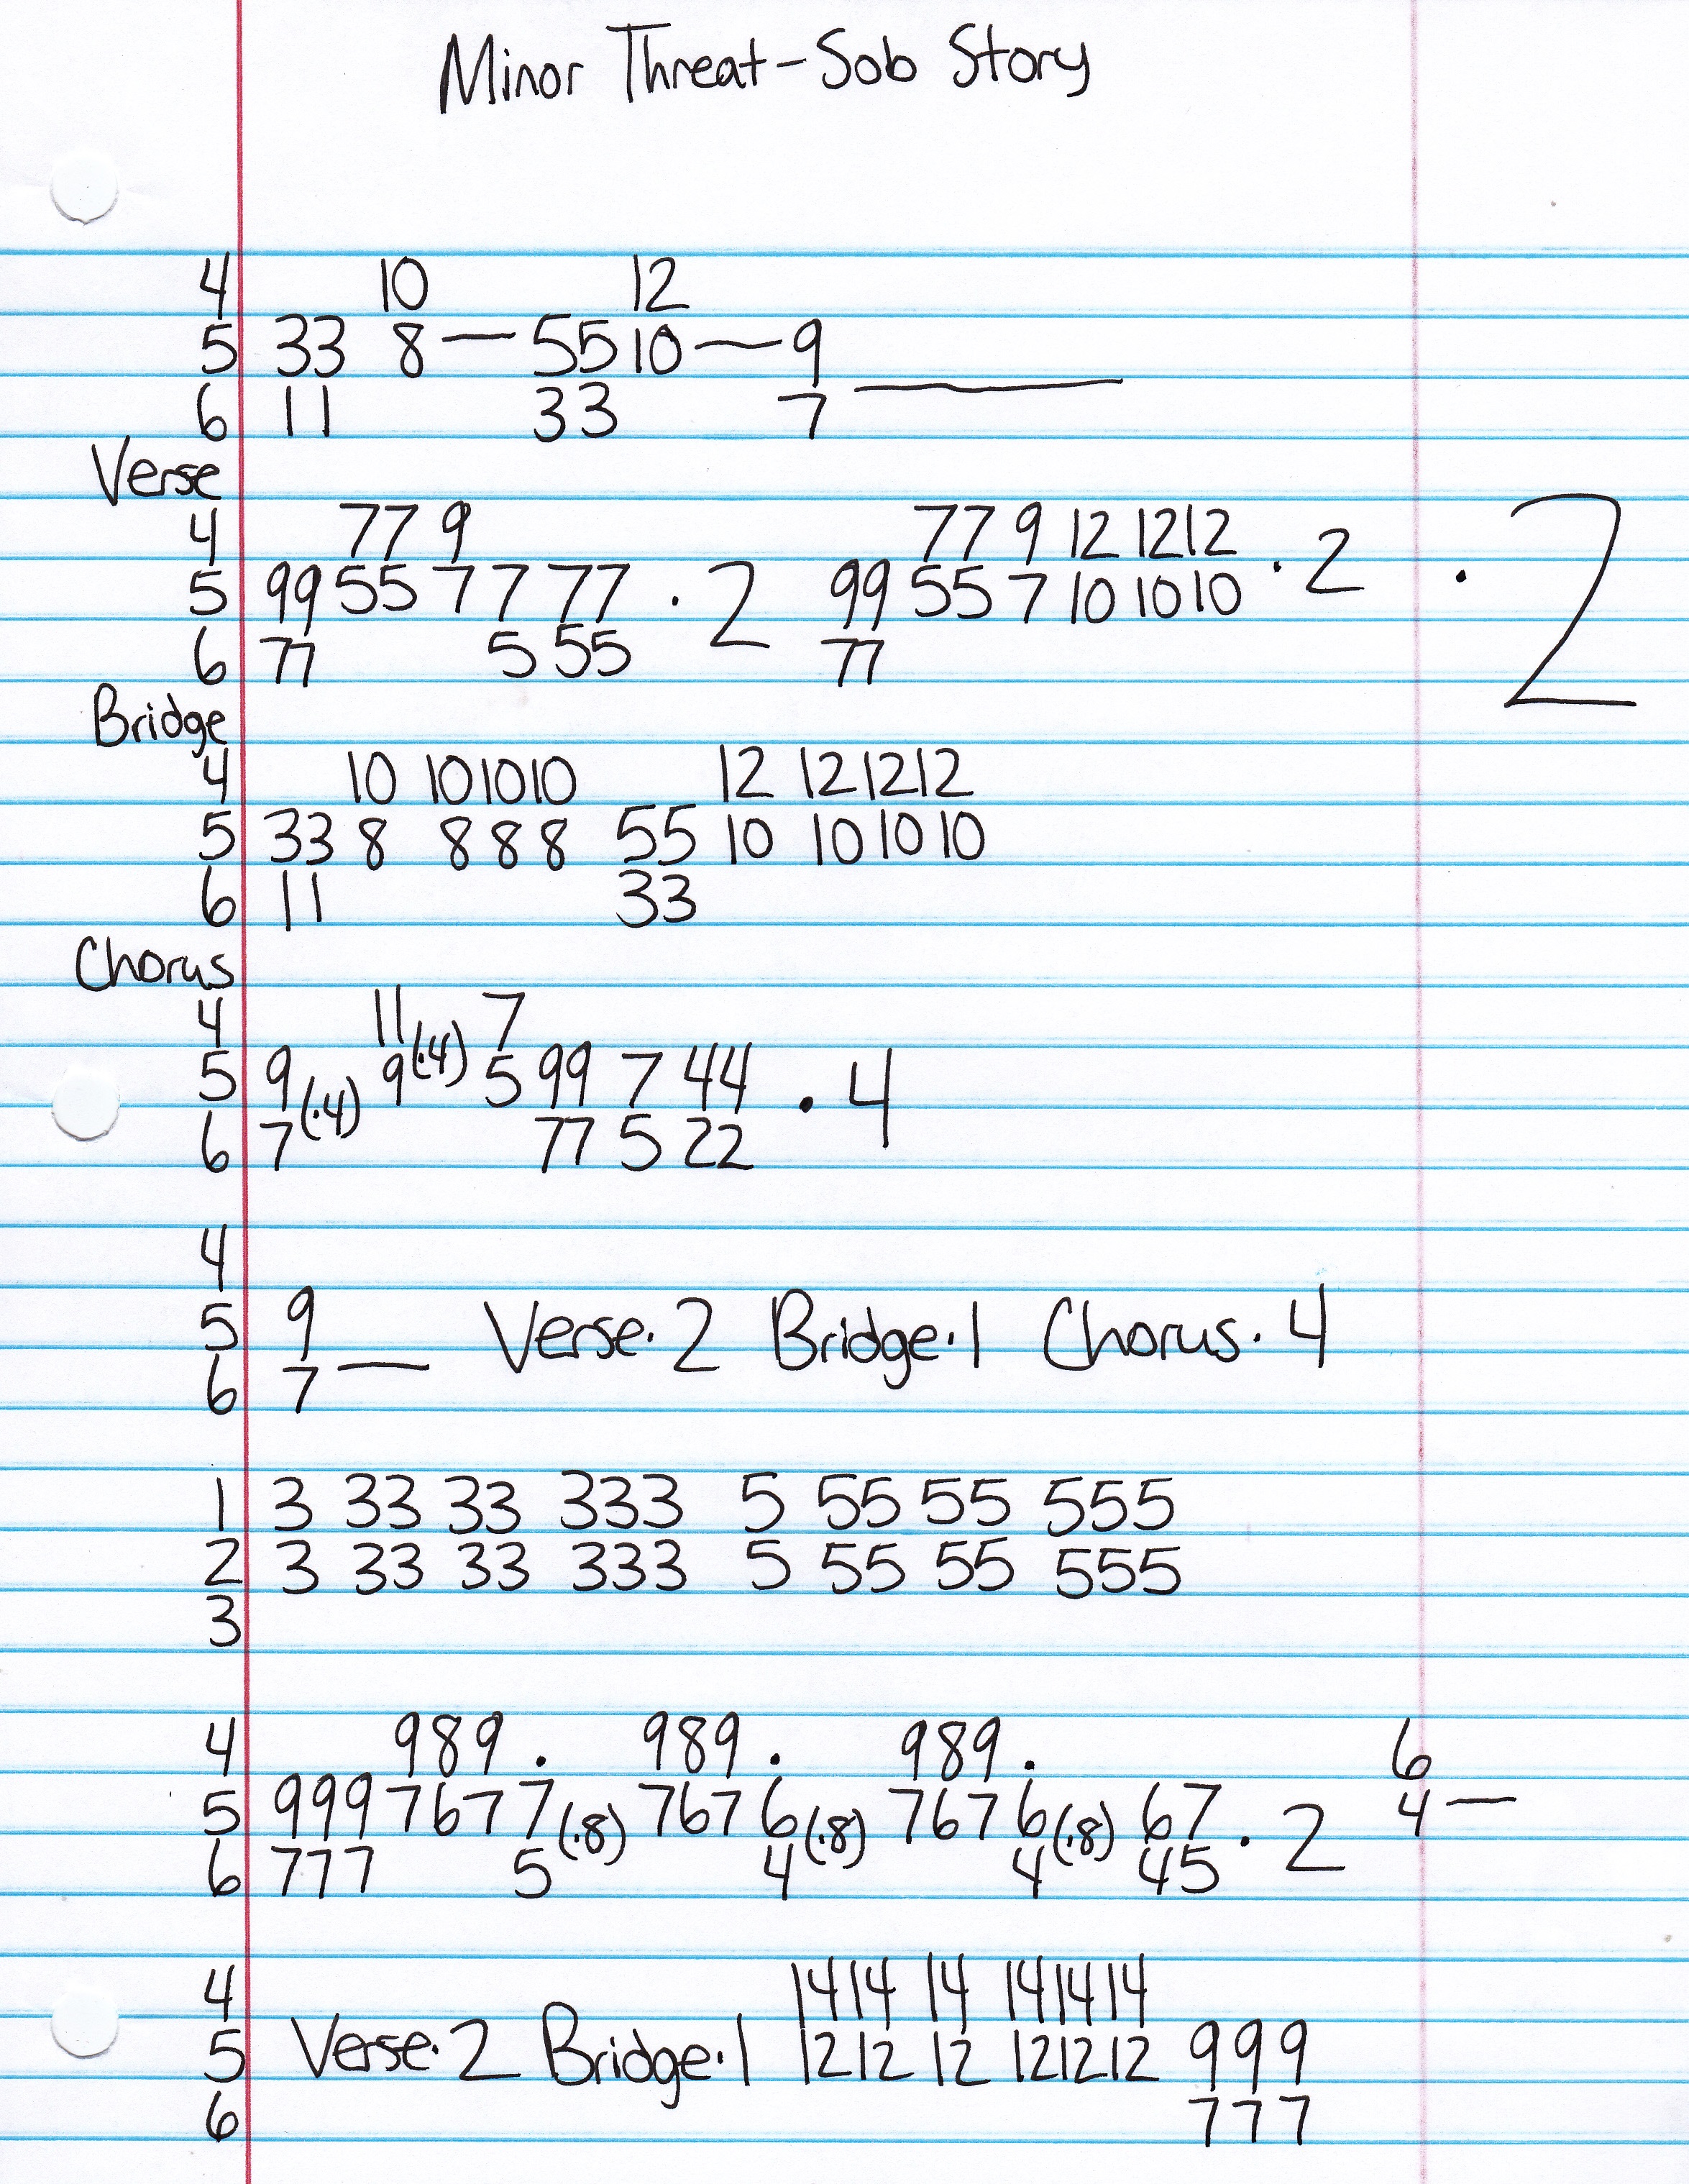 Minor Threat - Sob Story
4 10 12
5 33 8 — 55 10 — 9
6 11 33 7 ____
Verse
4 77 9 77 9 12 12 12
5 99 55 7 7 77 · 2 99 55 7 10 10 10 · 2 · 2
6 77 5 55 77
Bridge
4 10 10 10 10 12 12 12 12
5 33 8 8 8 8 55 10 10 10 10
6 11 33
Chorus
4 11 7
5 9 (·4) 9 (·4) 5 99 7 44 · 4
6 7 77 5 22
4
5 9 Verse · 2 Bridge · 1 Chorus · 4
6 7 —
1 3 33 33 333 5 55 55 555
2 3 33 33 333 5 55 55 555
3
4 989 · 989 · 989 · 6
5 999 767 7 7 (·8) 767 6 (·8) 767 6 (·8) 67 · 2 4 —
6 777 5 4 4 45
4 14 14 14 14 14 14
5 Verse · 2 Bridge · 1 12 12 12 12 12 12 999
6 777